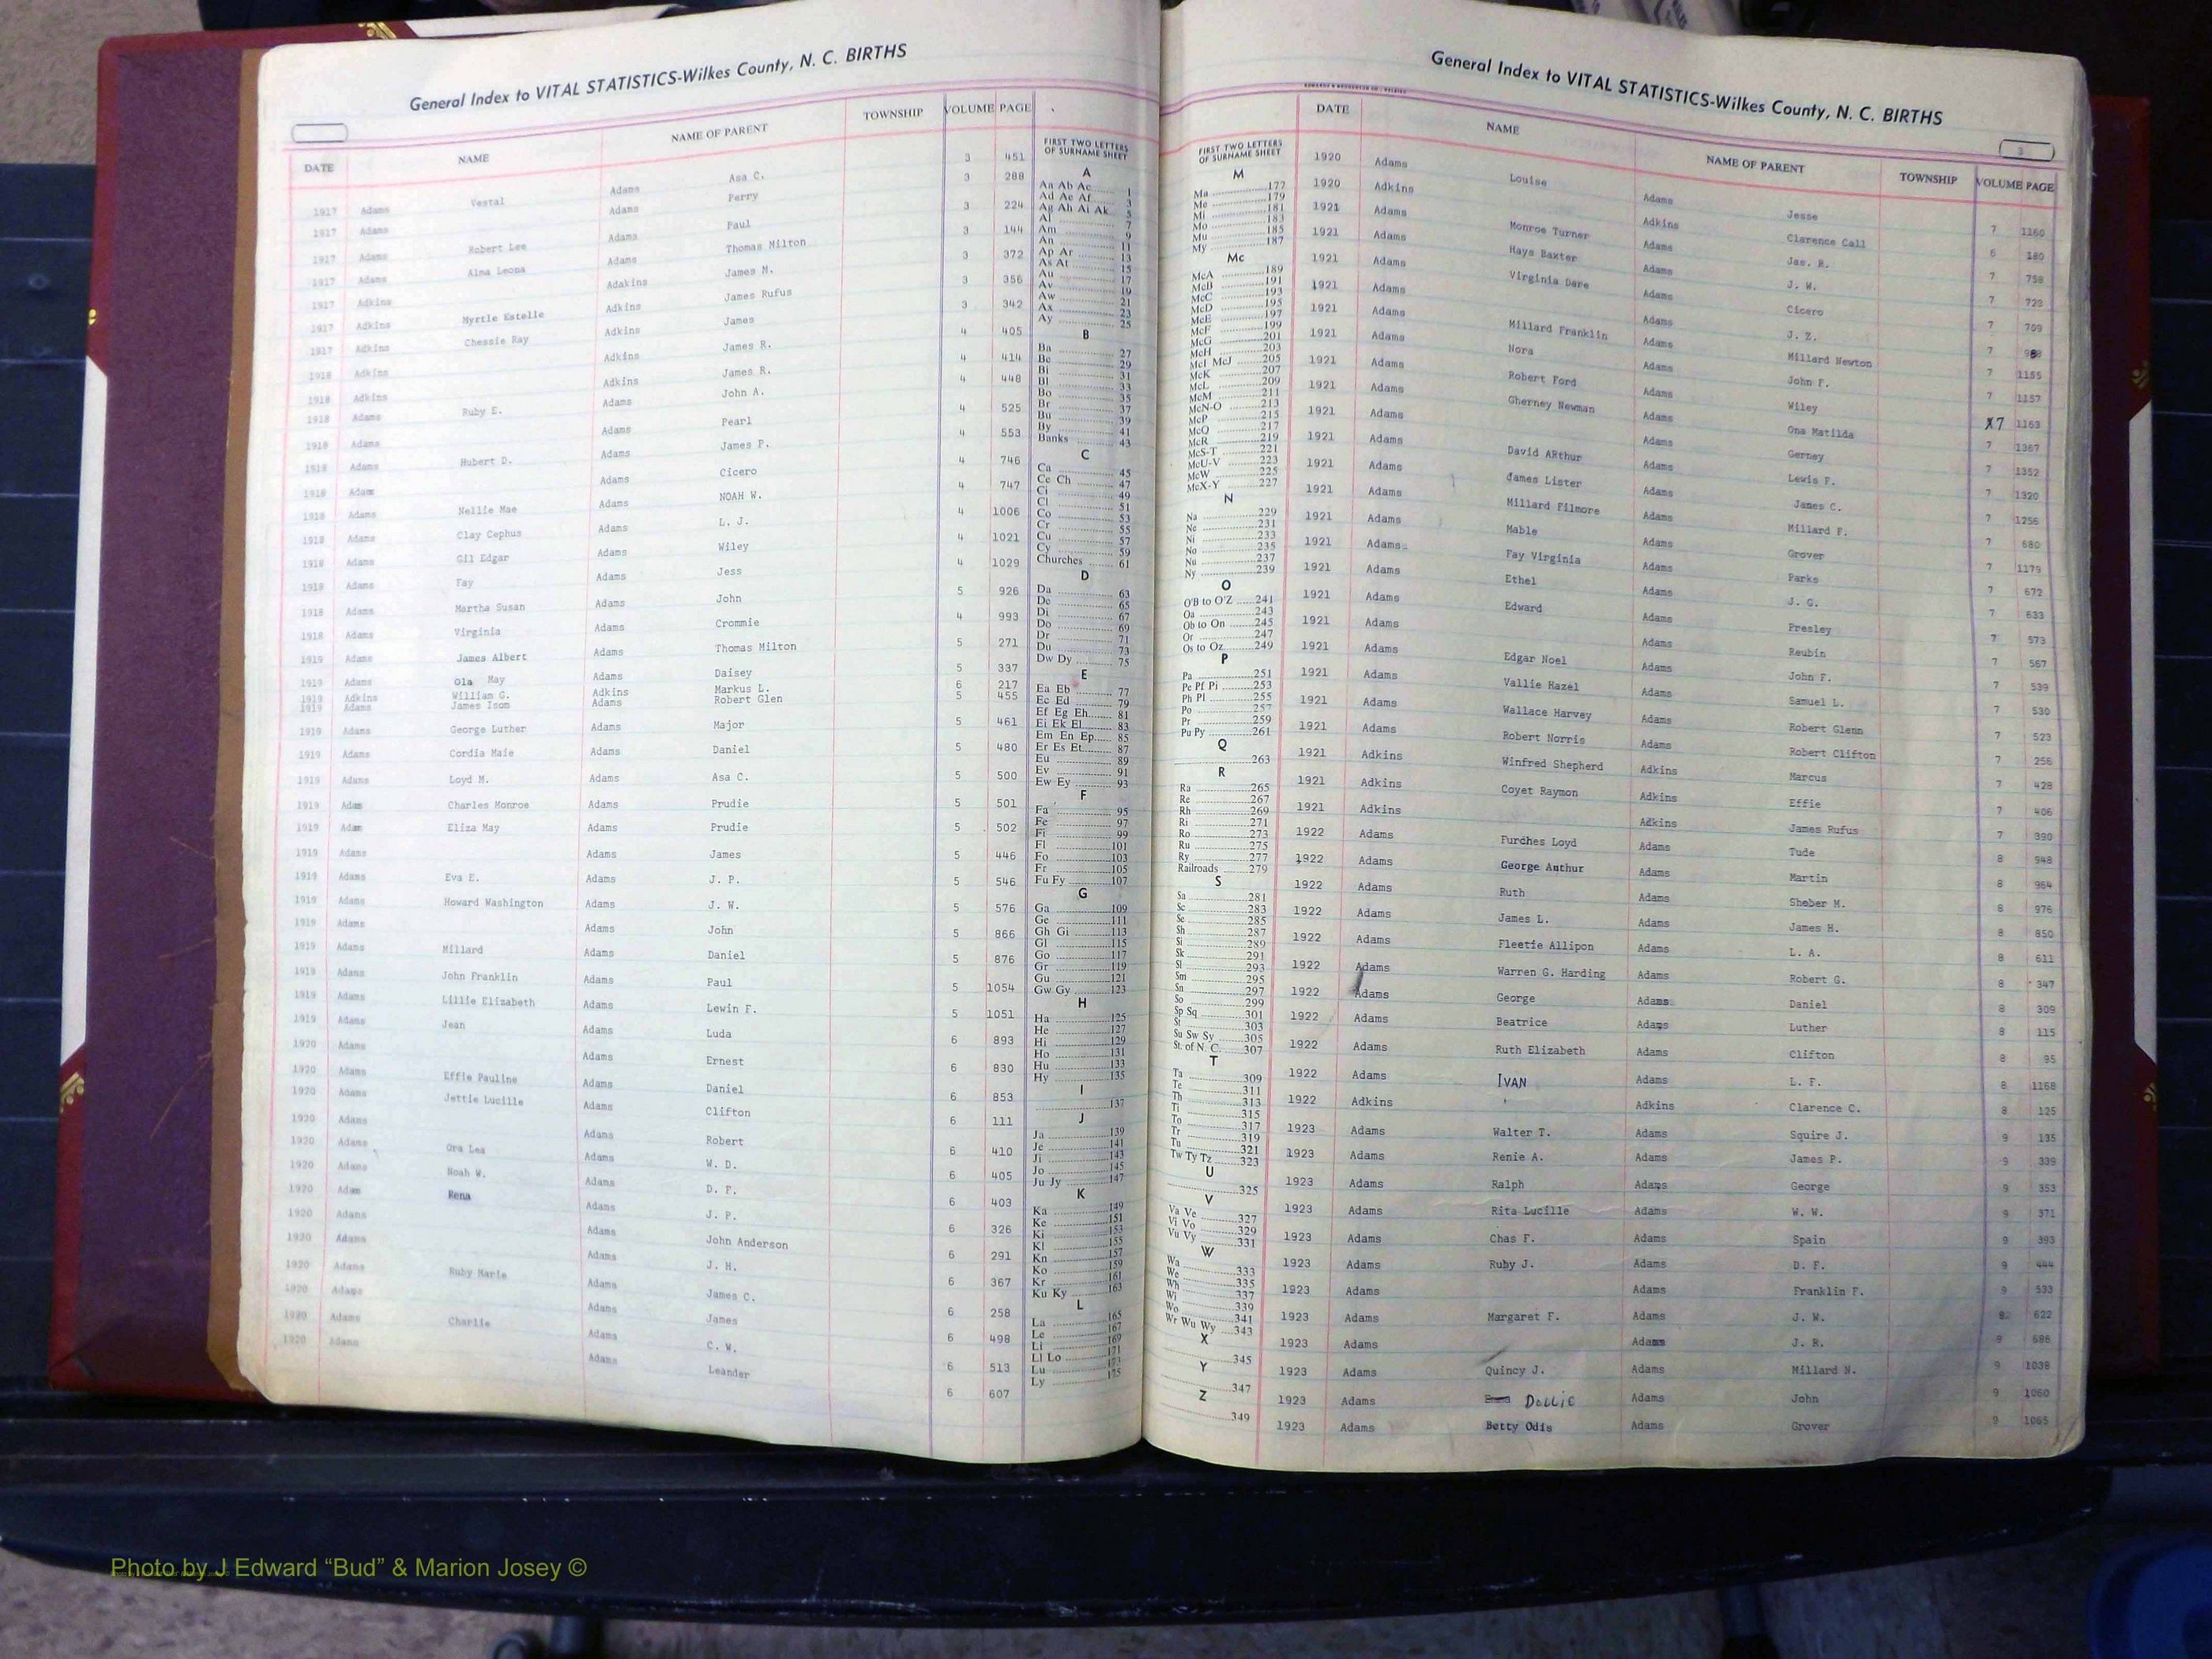 General Index to VITAL STATISTICS-Wilkes County, N. C. BIRTHS
DATE NAME NAME OF PARENT TOWNSHIP VOLUME PAGE
1917 Adams Vestal Adams Asa C. 3 451
1917 Adams Adams Perry 3 288
1917 Adams Robert Lee Adams Paul 3 224
1917 Adams Alma Leona Adams Thomas Milton 3 144
1917 Adkins Adakins James M. 3 372
1917 Adkins Myrtle Estelle Adkins James Rufus 3 356
1917 Adkins Chessie Ray Adkins James 3 342
1918 Adkins Adkins James R. 4 405
1918 Adkins Adkins James R. 4 414
1918 Adams Ruby E. Adams John A. 4 448
1918 Adams Adams Pearl 4 525
1918 Adams Hubert D. Adams James P. 4 553
1918 Adam Adams Cicero 4 746
1918 Adams Nellie Mae Adams NOAH W. 4 747
1918 Adams Clay Cephus Adams L. J. 4 1006
1918 Adams Gil Edgar Adams Wiley 4 1021
1918 Adams Fay Adams Jess 4 1029
1918 Adams Martha Susan Adams John 5 926
1918 Adams Virginia Adams Crommie 4 993
1919 Adams James Albert Adams Thomas Milton 5 271
1919 Adams Ola May Adams Daisey 5 337
1919 Adkins William G. Adkins Markus L. 6 217
1919 Adams James Isom Adams Robert Glen 5 455
1919 Adams George Luther Adams Major 5 461
1919 Adams Cordia Maie Adams Daniel 5 480
1919 Adams Loyd M. Adams Asa C. 5 500
1919 Adam Charles Monroe Adams Prudie 5 501
1919 Adam Eliza May Adams Prudie 5 502
1919 Adams Adams James 5 446
1919 Adams Eva E. Adams J. P. 5 546
1919 Adams Howard Washington Adams J. W. 5 576
1919 Adams Adams John 5 866
1919 Adams Millard Adams Daniel 5 876
1919 Adams John Franklin Adams Paul 5 1054
1919 Adams Lillie Elizabeth Adams Lewin F. 5 1051
1919 Adams Jean Adams Luda 6 893
1920 Adams Adams Ernest 6 830
1920 Adams Effie Pauline Adams Daniel 6 853
1920 Adams Jettie Lucille Adams Clifton 6 111
1920 Adams Adams Robert 6 410
1920 Adams Ora Lea Adams W. D. 6 405
1920 Adams Noah W. Adams D. F. 6 403
1920 Adam Rena Adams J. P. 6 326
1920 Adams Adams John Anderson 6 291
1920 Adams Adams J. H. 6 367
1920 Adams Ruby Marie Adams James C. 6 258
1920 Adams Adams James 6 498
1920 Adams Charlie Adams C. W. 6 513
1920 Adams Adams Leander 6 607
FIRST TWO LETTERS
OF SURNAME SHEET
A
Aa Ab Ac 1
Ad Ae Af 3
Ag Ah Ai Ak 5
Al 7
Am 9
An 11
Ap Ar 13
As At 15
Au 17
Av 19
Aw 21
Ax 23
Ay 25
B
Ba 27
Be 29
Bi 31
Bl 33
Bo 35
Br 37
Bu 39
By 41
Banks 43
C
Ca 45
Ce Ch 47
Ci 49
Cl 51
Co 53
Cr 55
Cu 57
Cy 59
Churches 61
D
Da 63
De 65
Di 67
Do 69
Dr 71
Du 73
Dw Dy 75
E
Ea Eb 77
Ec Ed 79
Ef Eg Eh 81
Ei Ek El 83
Em En Ep 85
Er Es Et 87
Eu 89
Ev 91
Ew Ey 93
F
Fa 95
Fe 97
Fi 99
Fl 101
Fo 103
Fr 105
Fu Fy 107
G
Ga 109
Ge 111
Gh Gi 113
Gl 115
Go 117
Gr 119
Gu 121
Gw Gy 123
H
Ha 125
He 127
Hi 129
Ho 131
Hu 133
Hy 135
I
137
J
Ja 139
Je 141
Ji 143
Jo 145
Ju Jy 147
K
Ka 149
Ke 151
Ki 153
Kl 155
Kn 157
Ko 159
Kr 161
Ku Ky 163
L
La 165
Le 167
Li 169
Ll Lo 171
Lu 173
Ly 175
General Index to VITAL STATISTICS-Wilkes County, N. C. BIRTHS
3
FIRST TWO LETTERS
OF SURNAME SHEET
M
Ma 177
Me 179
Mi 181
Mo 183
Mu 185
My 187
Mc
McA 189
McB 191
McC 193
McD 195
McE 197
McF 199
McG 201
McH 203
McI McJ 205
McK 207
McL 209
McM 211
McN-O 213
McP 215
McQ 217
McR 219
McS-T 221
McU-V 223
McW 225
McX-Y 227
N
Na 229
Ne 231
Ni 233
No 235
Nu 237
Ny 239
O
O'B to O'Z 241
Oa 243
Ob to On 245
Or 247
Os to Oz 249
P
Pa 251
Pe Pf Pi 253
Ph Pl 255
Po 257
Pr 259
Pu Py 261
Q
263
R
Ra 265
Re 267
Rh 269
Ri 271
Ro 273
Ru 275
Ry 277
Railroads 279
S
Sa 281
Sc 283
Se 285
Sh 287
Si 289
Sk 291
Sl 293
Sm 295
Sn 297
So 299
Sp Sq 301
St 303
Su Sw Sy 305
St. of N. C. 307
T
Ta 309
Te 311
Th 313
Ti 315
To 317
Tr 319
Tu 321
Tw Ty Tz 323
U
325
V
Va Ve 327
Vi Vo 329
Vu Vy 331
W
Wa 333
We 335
Wh 337
Wi 339
Wo 341
Wr Wu Wy 343
X
345
Y
347
Z
349
DATE NAME NAME OF PARENT TOWNSHIP VOLUME PAGE
1920 Adams Louise Adams Jesse 7 1160
1920 Adkins Adkins Clarence Call 6 180
1921 Adams Monroe Turner Adams Jas. R. 7 758
1921 Adams Hays Baxter Adams J. W. 7 723
1921 Adams Virginia Dare Adams Cicero 7 709
1921 Adams Adams J. Z. 7
1921 Adams Millard Franklin Adams Millard Newton 7 1155
1921 Adams Nora Adams John F. 7 1157
1921 Adams Robert Ford Adams Wiley X7 1163
1921 Adams Gherney Newman Adams Ona Matilda 7 1367
1921 Adams Adams Gerney 7 1352
1921 Adams David ARthur Adams Lewis F. 7 1320
1921 Adams James Lister Adams James C. 7 1256
1921 Adams Millard Filmore Adams Millard F. 7 680
1921 Adams Mable Adams Grover 7 1179
1921 Adams Fay Virginia Adams Parks 7 672
1921 Adams Ethel Adams J. G. 7 633
1921 Adams Edward Adams Presley 7 573
1921 Adams Adams Reubin 7 567
1921 Adams Edgar Noel Adams John F. 7 539
1921 Adams Vallie Hazel Adams Samuel L. 7 530
1921 Adams Wallace Harvey Adams Robert Glenn 7 523
1921 Adams Robert Norris Adams Robert Clifton 7 256
1921 Adkins Winfred Shepherd Adkins Marcus 7 428
1921 Adkins Coyet Raymon Adkins Effie 7 406
1921 Adkins Adkins James Rufus 7 390
1922 Adams Furches Loyd Adams Tude 8 948
1922 Adams George Authur Adams Martin 8 964
1922 Adams Ruth Adams Sheber M. 8 976
1922 Adams James L. Adams James H. 8 850
1922 Adams Fleetie Allipon Adams L. A. 8 611
1922 Adams Warren G. Harding Adams Robert G. 8 347
1922 Adams George Adams Daniel 8 309
1922 Adams Beatrice Adams Luther 8 115
1922 Adams Ruth Elizabeth Adams Clifton 8 95
1922 Adams IVAN Adams L. F. 8 1168
1922 Adkins Adkins Clarence C. 8 125
1923 Adams Walter T. Adams Squire J. 9 135
1923 Adams Renie A. Adams James P. 9 339
1923 Adams Ralph Adams George 9 353
1923 Adams Rita Lucille Adams W. W. 9 371
1923 Adams Chas F. Adams Spain 9 393
1923 Adams Ruby J. Adams D. F. 9 444
1923 Adams Adams Franklin F. 9 533
1923 Adams Margaret F. Adams J. W. 622
1923 Adams Adams J. R. 9 686
1923 Adams Quincy J. Adams Millard N. 9 1038
1923 Adams Dollie Adams John 9 1060
1923 Adams Betty Odis Adams Grover 9 1065
Photo by J Edward “Bud” & Marion Josey ©